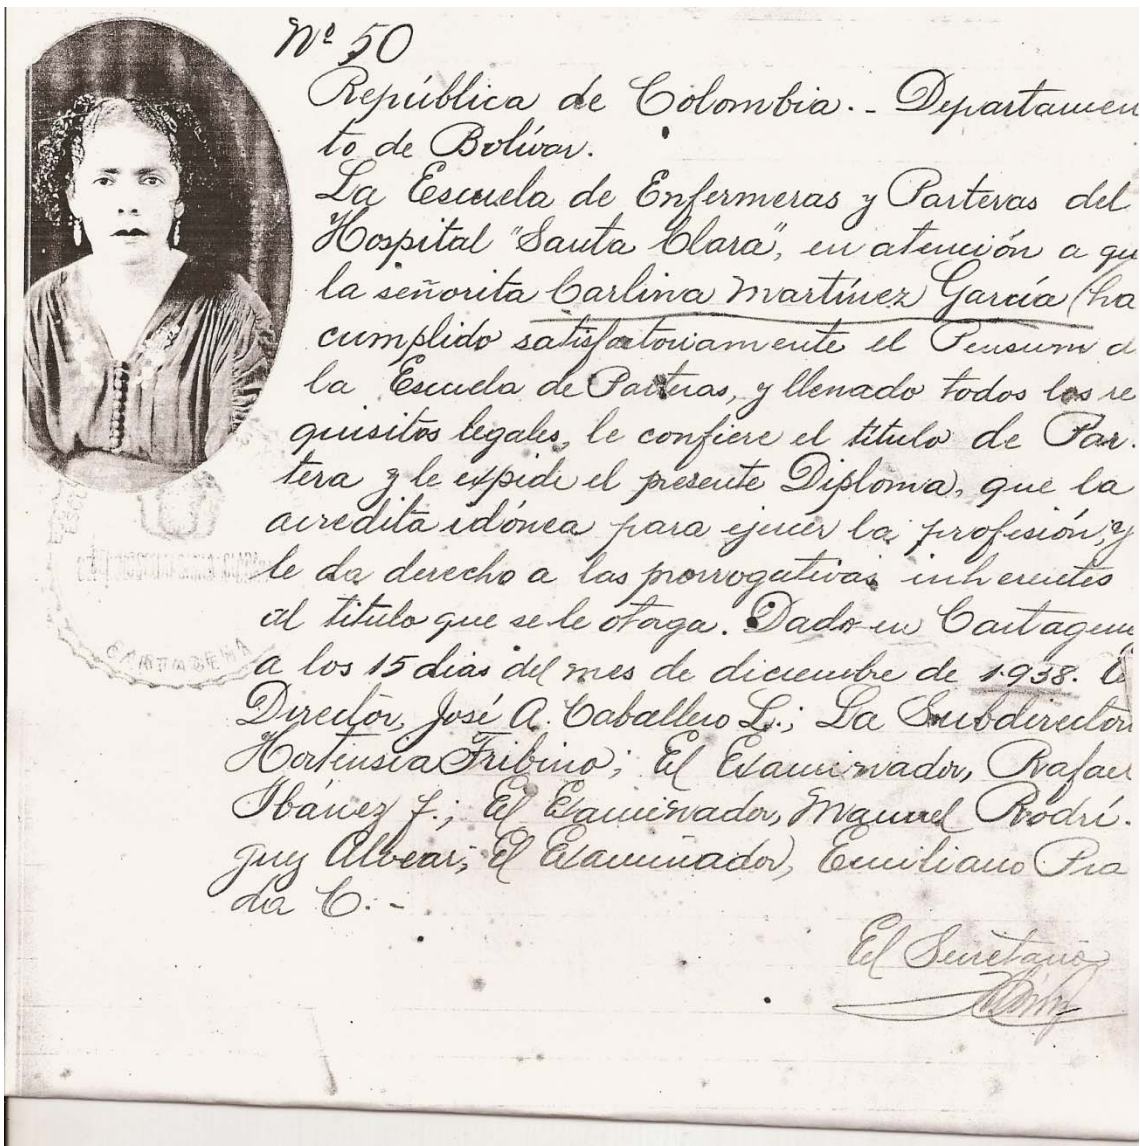 Nº 50
República de Colombia. - Departamen
to de Bolívar.
La Escuela de Enfermeras y Parteras del
Hospital "Santa Clara", en atención a qu
la señorita Carlina Martínez García (ha
cumplido satisfactoriamente el Pensum d
la Escuela de Parteras, y llenado todos los re
quisitos legales, le confiere el título de Par-
tera y le expide el presente Diploma, que la
acredita idónea para ejercer la profesión, y
le da derecho a las prorrogativas inherentes
al título que se le otorga. Dado en Cartagena
a los 15 dias del mes de diciembre de 1.938.
Director, José A. Caballero L.; La Subdirector
Hortensia Fribino; El Examinador, Rafael
Ibánez J.; El Examinador, Manuel Rodrí-
guez Alvear; El Examinador, Emiliano Pra
da C. -
El Secretario
CARTAGENA